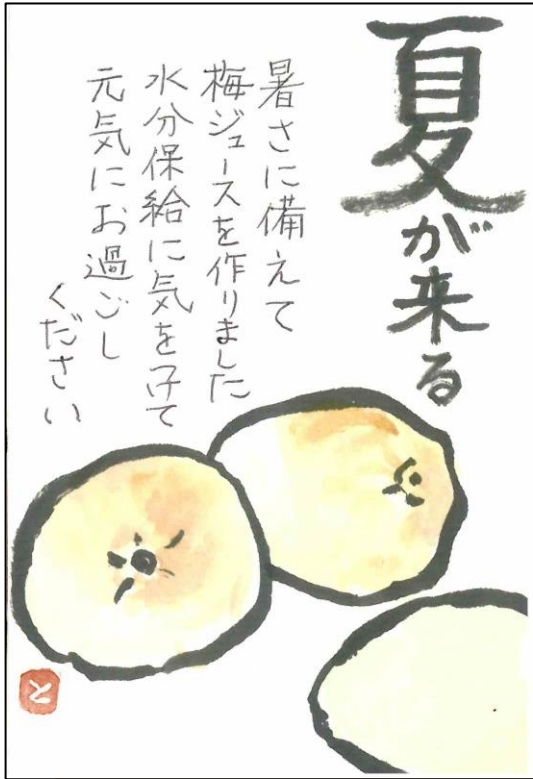 夏が来る
暑さに備えて
梅ジュースを作りました
水分保給に気を付て
元気にお過ごし
ください
と